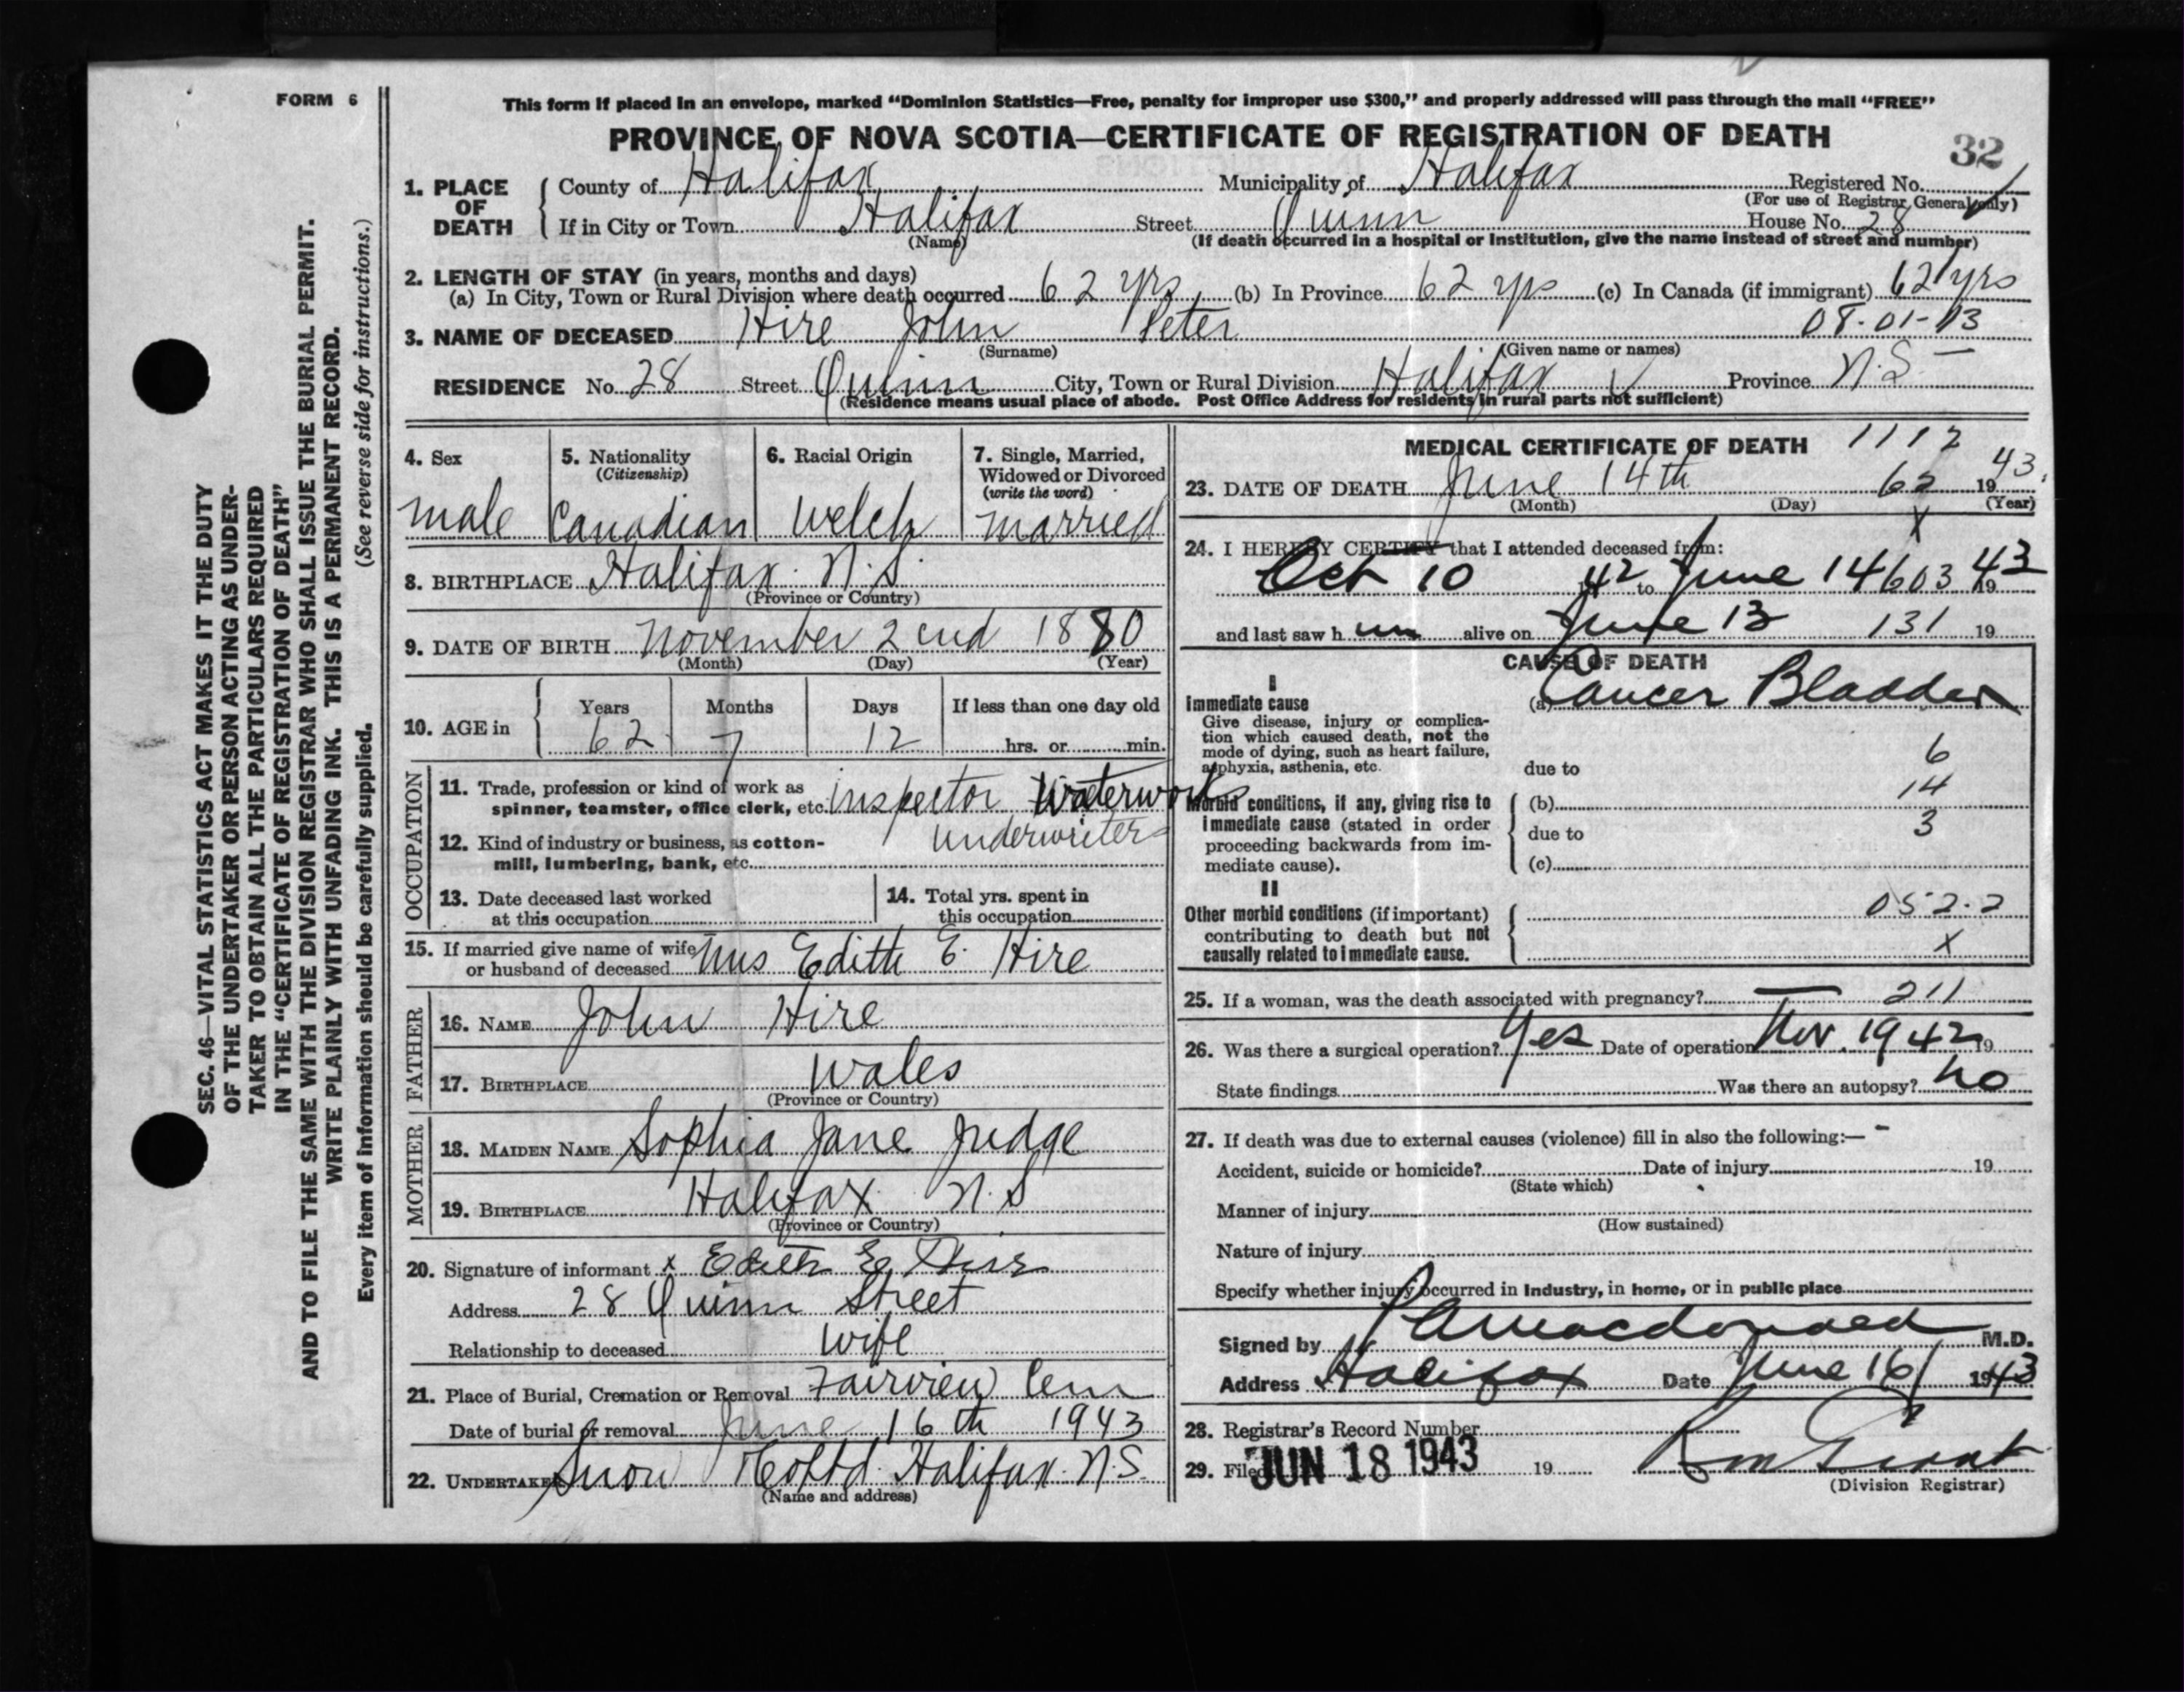 FORM 6
This form if placed in an envelope, marked “Dominion Statistics—Free, penalty for improper use $300,” and properly addressed will pass through the mail “FREE”
PROVINCE OF NOVA SCOTIA—CERTIFICATE OF REGISTRATION OF DEATH
32
1. PLACE OF DEATH
County of Halifax Municipality of Halifax Registered No.
(For use of Registrar General only)
If in City or Town Halifax Street Quinn House No. 28
(Name) (If death occurred in a hospital or institution, give the name instead of street and number)
2. LENGTH OF STAY (in years, months and days)
(a) In City, Town or Rural Division where death occurred 62 yrs (b) In Province 62 yrs (c) In Canada (if immigrant) 62 yrs
3. NAME OF DECEASED Hire John Peter 08-01-13
(Surname) (Given name or names)
RESIDENCE No. 28 Street Quinn City, Town or Rural Division Halifax Province N.S.
(Residence means usual place of abode. Post Office Address for residents in rural parts not sufficient)
4. Sex
male
5. Nationality
(Citizenship)
Canadian
6. Racial Origin
Welch
7. Single, Married,
Widowed or Divorced
(write the word)
married
8. BIRTHPLACE Halifax N.S.
(Province or Country)
9. DATE OF BIRTH November 2cnd 1880
(Month) (Day) (Year)
10. AGE in
Years Months Days If less than one day old
62 7 12 hrs. or min.
OCCUPATION
11. Trade, profession or kind of work as
spinner, teamster, office clerk, etc. inspector Waterworks
12. Kind of industry or business, as cotton-
mill, lumbering, bank, etc. underwriters
13. Date deceased last worked
at this occupation
14. Total yrs. spent in
this occupation
15. If married give name of wife
or husband of deceased Mrs Edith E. Hire
FATHER
16. NAME John Hire
17. BIRTHPLACE Wales
(Province or Country)
MOTHER
18. MAIDEN NAME Sophia Jane Judge
19. BIRTHPLACE Halifax N.S
(Province or Country)
20. Signature of informant x Edith E. Hire
Address 28 Quinn Street
Relationship to deceased wife
21. Place of Burial, Cremation or Removal Fairview Cem
Date of burial or removal June 16th 1943
22. UNDERTAKER Snow & Co Ltd Halifax N.S.
(Name and address)
MEDICAL CERTIFICATE OF DEATH 1112
23. DATE OF DEATH June 14th 62 1943.
(Month) (Day) (Year)
x
24. I HEREBY CERTIFY that I attended deceased from:
Oct 10 1942 to June 14 603 1943
and last saw h im alive on June 13 131 19
CAUSE OF DEATH
I
Immediate cause
(a) Cancer Bladder
Give disease, injury or complica-
tion which caused death, not the
mode of dying, such as heart failure,
asphyxia, asthenia, etc.
due to 6
Morbid conditions, if any, giving rise to
immediate cause (stated in order
proceeding backwards from im-
mediate cause).
(b) 14
due to 3
(c)
II
Other morbid conditions (if important)
contributing to death but not
causally related to immediate cause.
052.2
x
25. If a woman, was the death associated with pregnancy? — 211
26. Was there a surgical operation? Yes Date of operation Nov. 1942 19
State findings Was there an autopsy? no
27. If death was due to external causes (violence) fill in also the following:— -
Accident, suicide or homicide? Date of injury 19
(State which)
Manner of injury
(How sustained)
Nature of injury
Specify whether injury occurred in industry, in home, or in public place
Signed by P A Macdonald M.D.
Address Halifax Date June 16/ 1943
28. Registrar's Record Number
29. Filed JUN 18 1943 19
(Division Registrar)
SEC. 46—VITAL STATISTICS ACT MAKES IT THE DUTY
OF THE UNDERTAKER OR PERSON ACTING AS UNDER-
TAKER TO OBTAIN ALL THE PARTICULARS REQUIRED
IN THE “CERTIFICATE OF REGISTRATION OF DEATH”
AND TO FILE THE SAME WITH THE DIVISION REGISTRAR WHO SHALL ISSUE THE BURIAL PERMIT.
WRITE PLAINLY WITH UNFADING INK. THIS IS A PERMANENT RECORD.
Every item of information should be carefully supplied. (See reverse side for instructions.)